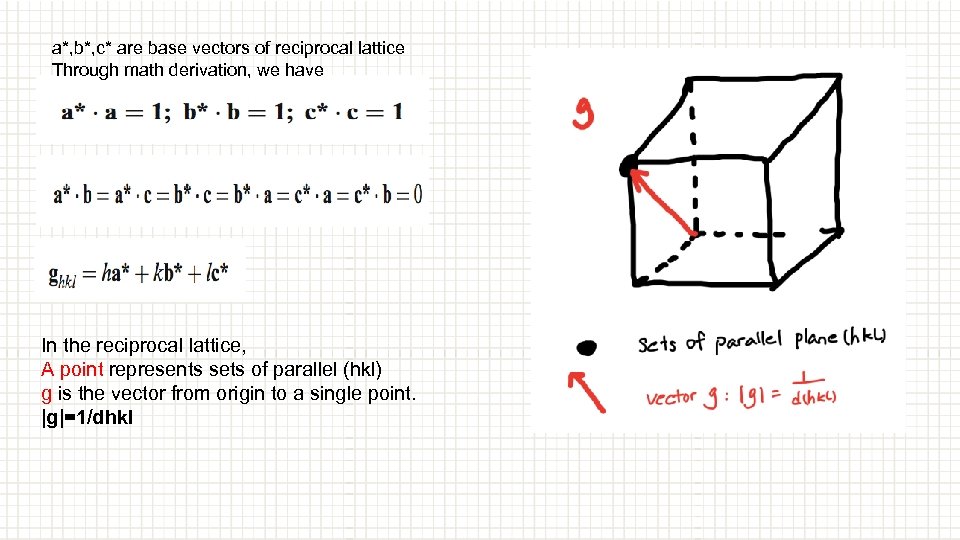 a*, b*, c* are base vectors of reciprocal lattice
Through math derivation, we have
a* · a = 1; b* · b = 1; c* · c = 1
a* · b = a* · c = b* · c = b* · a = c* · a = c* · b = 0
g_hkl = ha* + kb* + lc*
In the reciprocal lattice,
A point represents sets of parallel (hkl)
g is the vector from origin to a single point.
|g|=1/dhkl
g
sets of parallel plane (hkl)
vector g : |g| = 1/d(hkl)